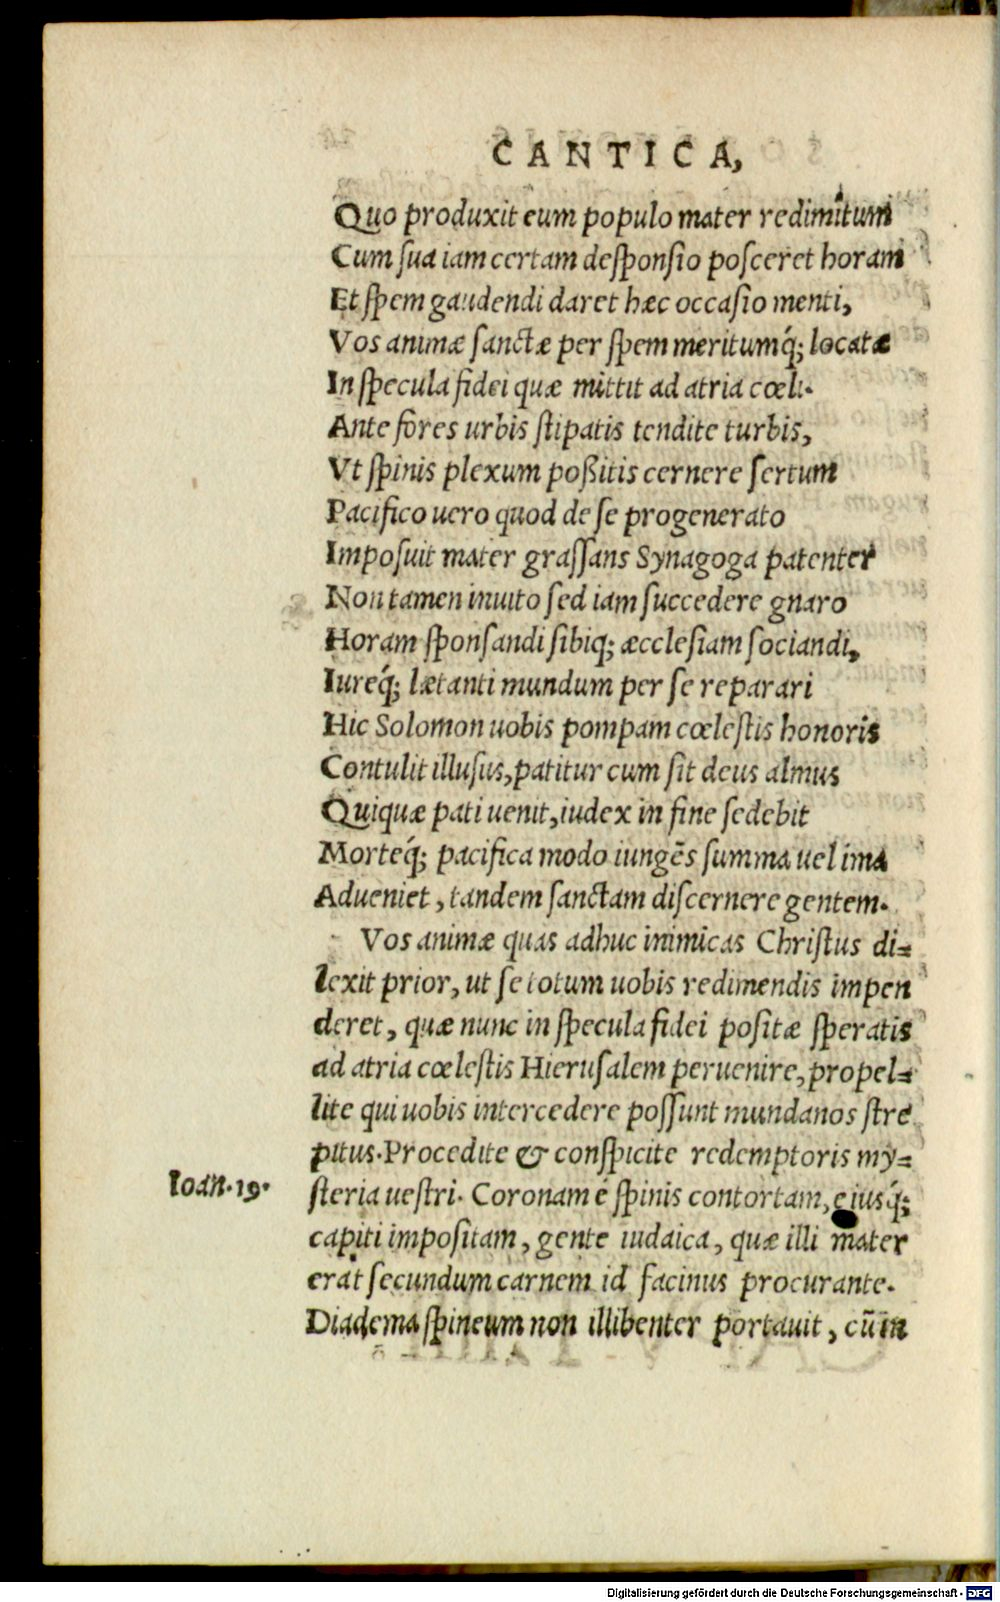 CANTICA,
Quo produxit eum populo mater redimitum
Cum ſua iam certam deſponſio poſceret horam
Et ſpem gaudendi daret hæc occaſio menti,
Vos animæ ſanctæ per ſpem meritumq́; locatæ
In ſpecula fidei quæ mittit ad atria cœli.
Ante fores urbis ſtipatis tendite turbis,
Vt ſpinis plexum poßitis cernere ſertum
Pacifico uero quod de ſe progenerato
Impoſuit mater graſſans Synagoga patenter
Non tamen inuito ſed iam ſuccedere gnaro
Horam ſponſandi ſibiq; æccleſiam ſociandi,
Iureq́; lætanti mundum per ſe reparari
Hic Solomon uobis pompam cœleſtis honoris
Contulit illuſus, patitur cum ſit deus almus
Quiquæ pati uenit, iudex in fine ſedebit
Morteq́; pacifica modo iungēs ſumma uel ima
Adueniet, tandem ſanctam diſcernere gentem.
Vos animæ quas adhuc inimicas Chriſtus di-
lexit prior, ut ſe totum uobis redimendis impen
deret, quæ nunc in ſpecula fidei poſitæ ſperatis
ad atria cœleſtis Hieruſalem peruenire, propel-
lite qui uobis intercedere poſſunt mundanos ſtre
pitus. Procedite & conſpicite redemptoris my-
Ioan. 19. ſteria ueſtri. Coronam é ſpinis contortam, eiusq́;
capiti impoſitam, gente iudaica, quæ illi mater
erat ſecundum carnem id facinus procurante.
Diadema ſpineum non illibenter portauit, cū in